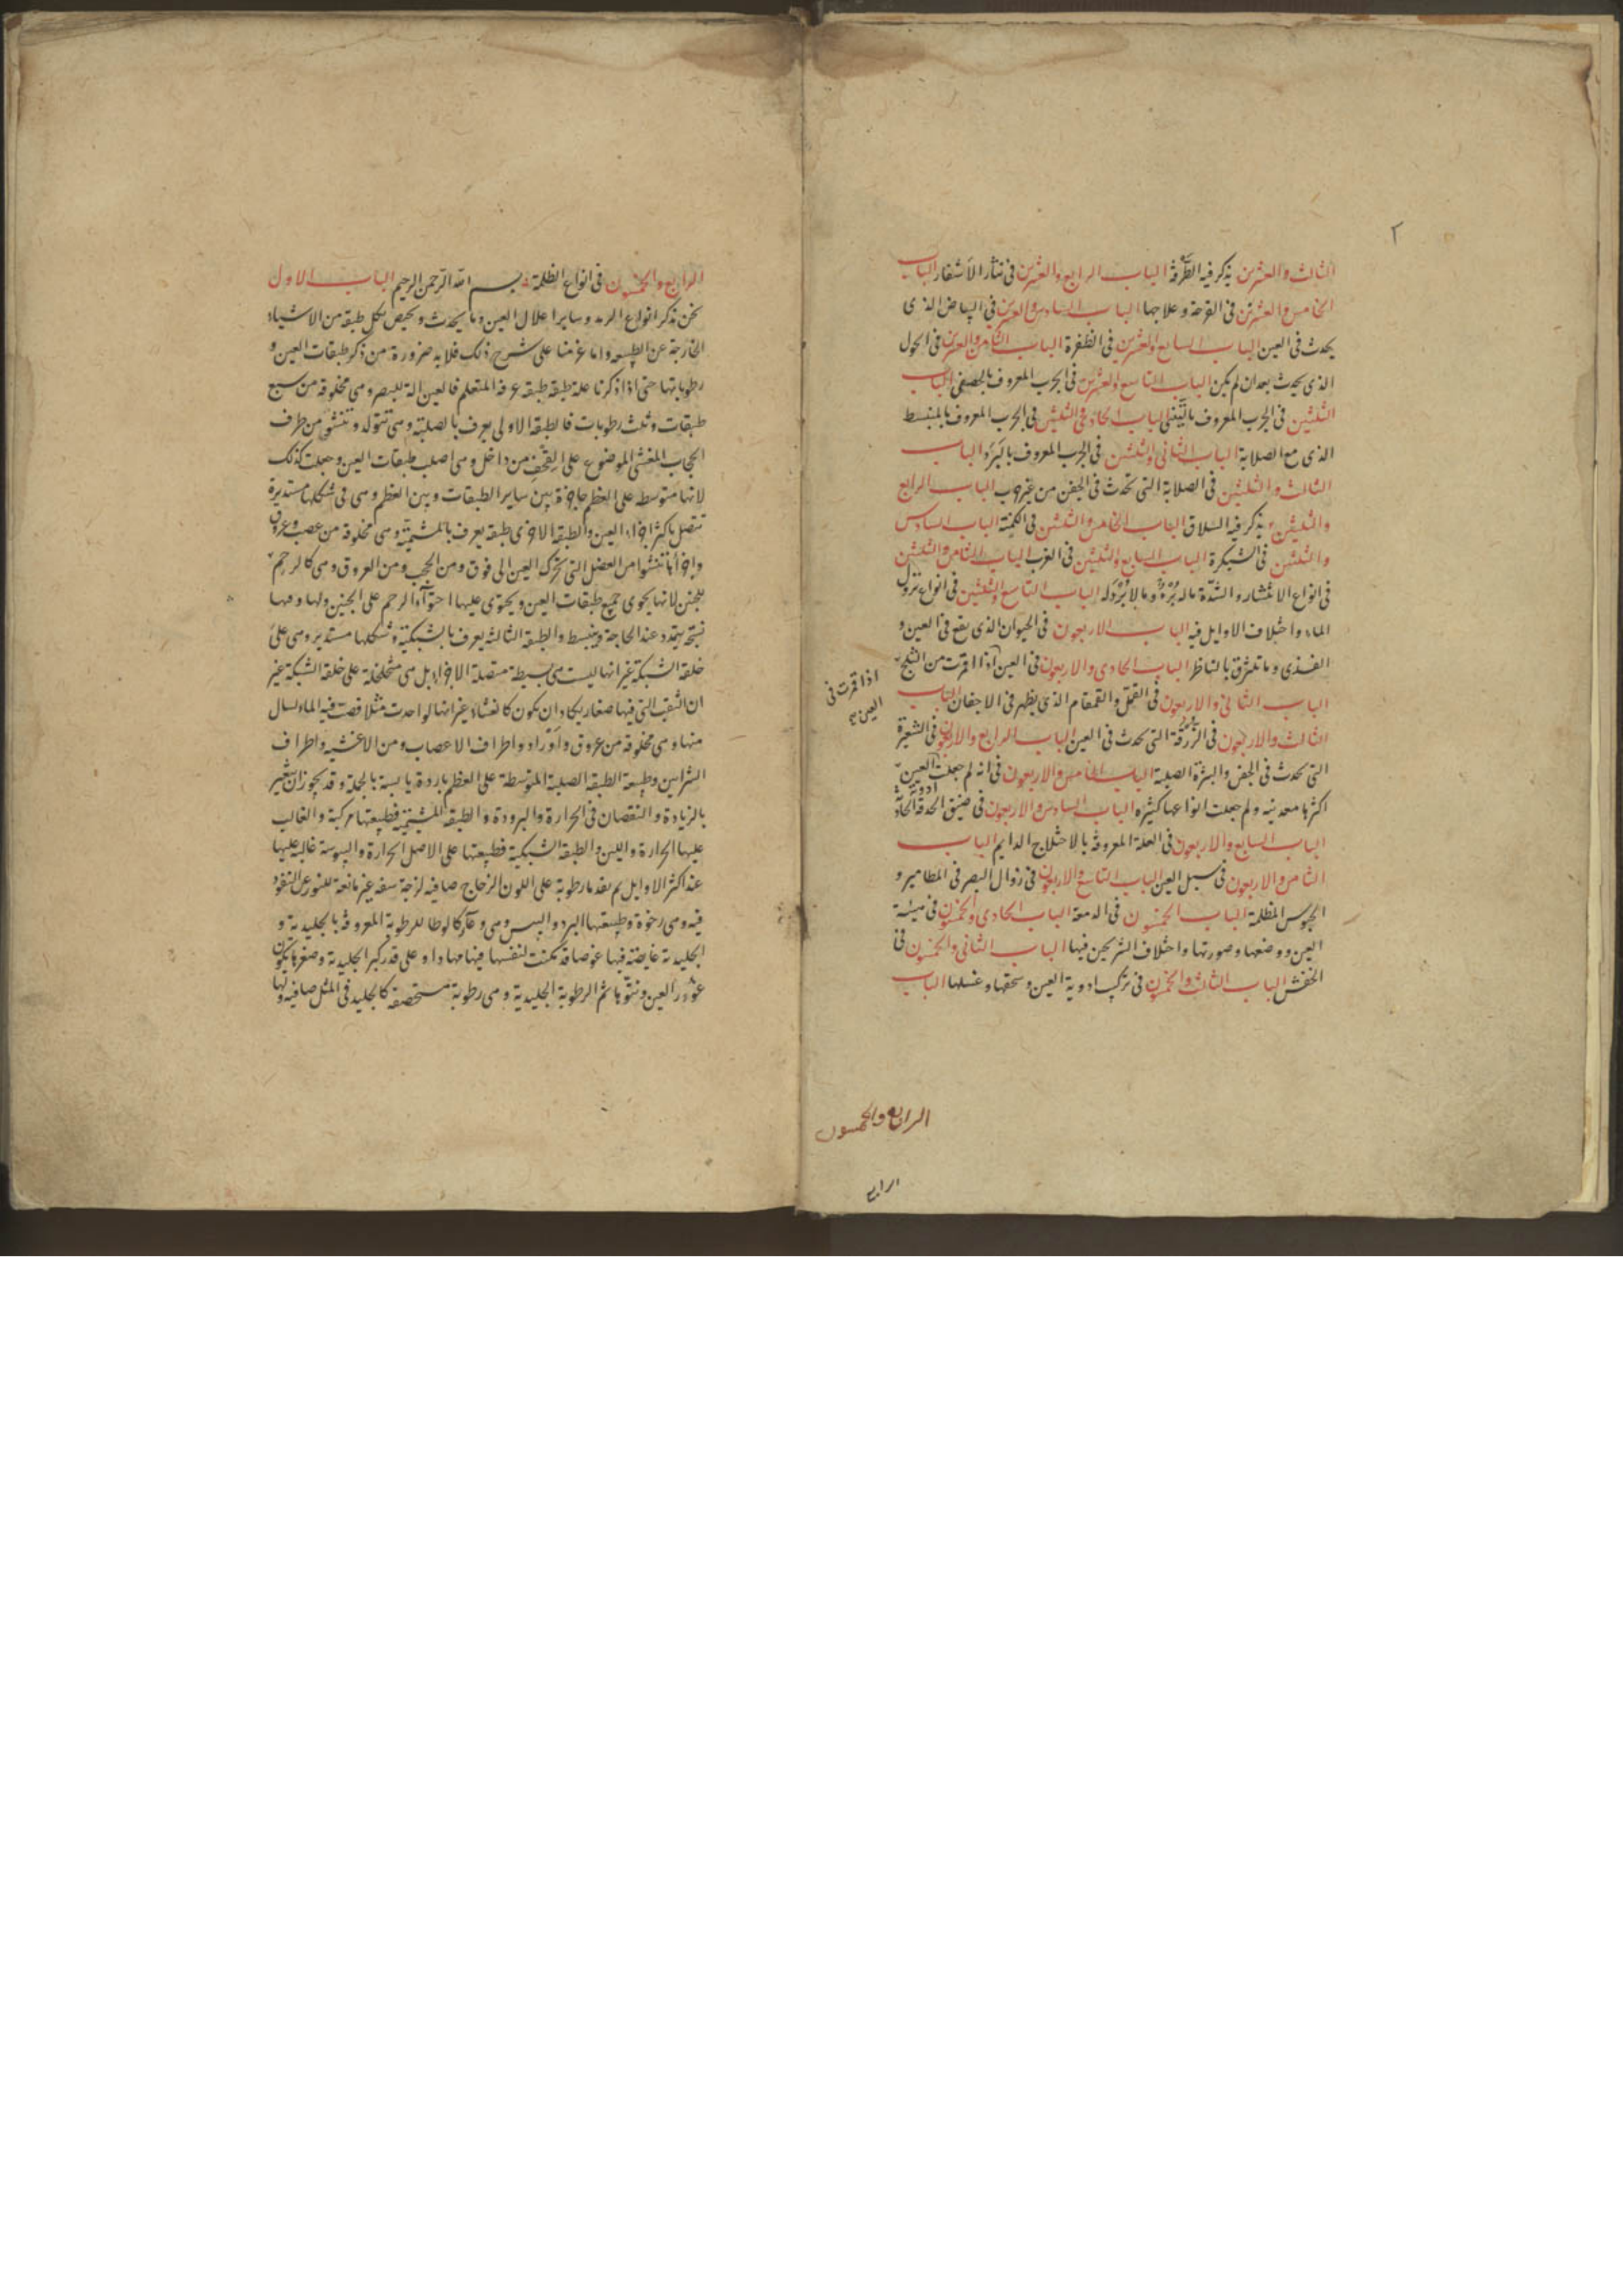 ٢
الثالث والعشرين يذكر فيه الطرفة الباب الرابع والعشرين في تناثر الاشفار الباب
الخامس والعشرين في القرحة وعلاجها الباب السادس والعشرين في البياض الذي
يحدث في العين الباب السابع والعشرين في الظفرة الباب الثامن والعشرين في الحول
الذي يحدث بعد ان لم يكن الباب التاسع والعشرين في الجرب المعروف بالحصفى الباب
الثلثين في الجرب المعروف بالتينى الباب الحادى والثلثين في الجرب المعروف بالمنبسط
الذي مع الصلابة الباب الثانى والثلثين في الجرب المعروف بالبَرَد الباب
الثالث والثلثين في الصلابة التي تحدث في الجفن من غير جرب الباب الرابع
والثلثين يذكر فيه السلاق الباب الخامس والثلثين في الكمنة الباب السادس
والثلثين في الشبكرة الباب السابع والثلثين في الغرب الباب الثامن والثلثين
في انواع الانتشار والسُّدّة ما له بُرْءٌ وما لا بُرْءَ له الباب التاسع والثلثين في انواع نزول
الماء واختلاف الاوايل فيه الباب الاربعون في الحيوان الذي يقع في العين و
القذى وما تلتزق بالناظر الباب الحادى والاربعون في العين اذا اقرت من الثلج
الباب الثانى والاربعون في القمّل والقمقام الذي يظهر في الاجفان الباب
الثالث والاربعون في الزُّرقة التي تحدث في العين الباب الرابع والاربعون في الشعيرة
التي تحدث في الجفن والبثرة الصلبة الباب الخامس والاربعون في انه لم جعلت ادوية العين
اكثرها معدنية ولم جعلت انواعها كثيرة الباب السادس والاربعون في ضيق الحدقة الحادثة
الباب السابع والاربعون في العلة المعروفة بالاختلاج الدايم الباب
الثامن والاربعون في سبل العين الباب التاسع والاربعون في زوال البصر في المطامير و
الحبوس المظلمة الباب الخمسون في الدمعة الباب الحادى والخمسون في هيئة
العين ووضعها وصورتها واختلاف المشرحين فيها الباب الثانى والخمسون في
الخفش الباب الثالث والخمسون في تركيب ادوية العين وسحقها وغسلها الباب
اذا قمرت في
العين
الرابع والخمسون
الرابع
الرابع والخمسون في انواع الظلمة بسم الله الرحمن الرحيم الباب الاول
نحن نذكر انواع الرمد وساير اعلال العين وما يحدث ويخص بكل طبقة من الاشياء
الخارجة عن الطبيعة واما عزمنا على شرح ذلك فلا بد ضرورة من ذكر طبقات العين و
رطوباتها حتى اذا ذكرنا علة طبقة طبقة عرفه المتعلم فالعين الة للبصر وهي مخلوقة من سبع
طبقات وثلث رطوبات فالطبقة الاولى يعرف بالصلبة وهي تتولد وتنشو من طرف
الحجاب المغشي الموضوع على القحف من داخل وهي اصلب طبقات العين وجعلت كذلك
لانها متوسط على العظم حاجزة بين ساير الطبقات وبين العظم وهي في شكلها مستديرة
تتصل باكثر اجزاء العين والطبقة الاخرى طبقة يعرف بالمشيمية وهي مخلوقة من عصب وعروق
واجزائها تنشوا من العضل التي تحرك العين الى فوق ومن الحجب ومن العروق وهي كالرحم
للجنين لانها يحوى جميع طبقات العين ويحتوى عليها احتواء الرحم على الجنين ولها
يتمدد عند الحاجة وينبسط والطبقة الثالثة يعرف بالشبكية وشكلها مستدير وهي على
خلقة الشبكة غير انها ليست هي بسيطة متصلة الاجزاء بل هي متخلخلة على خلقة الشبكة غير
ان الثقب التي فيها صغار يكاد ان يكون كالغشاء غير انها لو اخذت مثلا فصب فيه الماء لسال
منها وهي مخلوقة من عروق واوراد واطراف الاعصاب ومن الاغشية واطراف
الشرايين وطبيعة الطبقة الصلبة المتوسطة على العظم باردة يابسة بالجملة وقد يجوز ان يتغير
بالزيادة والنقصان في الحرارة والبرودة والطبقة المشيمية فطبيعتها مركبة والغالب
عليها الحرارة واللين والطبقة الشبكية فطبيعتها على الاصل الحرارة واليبوسة غالبة عليها
عند اكثر الاوايل ثم بعد ها رطوبة على اللون الزجاج صافية لزجة غير مانعة للنور عن النفوذ
فيه وهي رخوة وطبيعتها البرد واليبس وهي وعاء كالوطا للرطوبة المعروفة بالجليدية و
الجليدية غايصة فيها غوصا قد تمكنت لنفسها فيها مهادا وعلى قدر كبر الجليدية وصغرها يكون
غوور العين ونتوها ثم الرطوبة الجليدية وهي رطوبة مستحصفة كالجليد في المثل صافية ولها